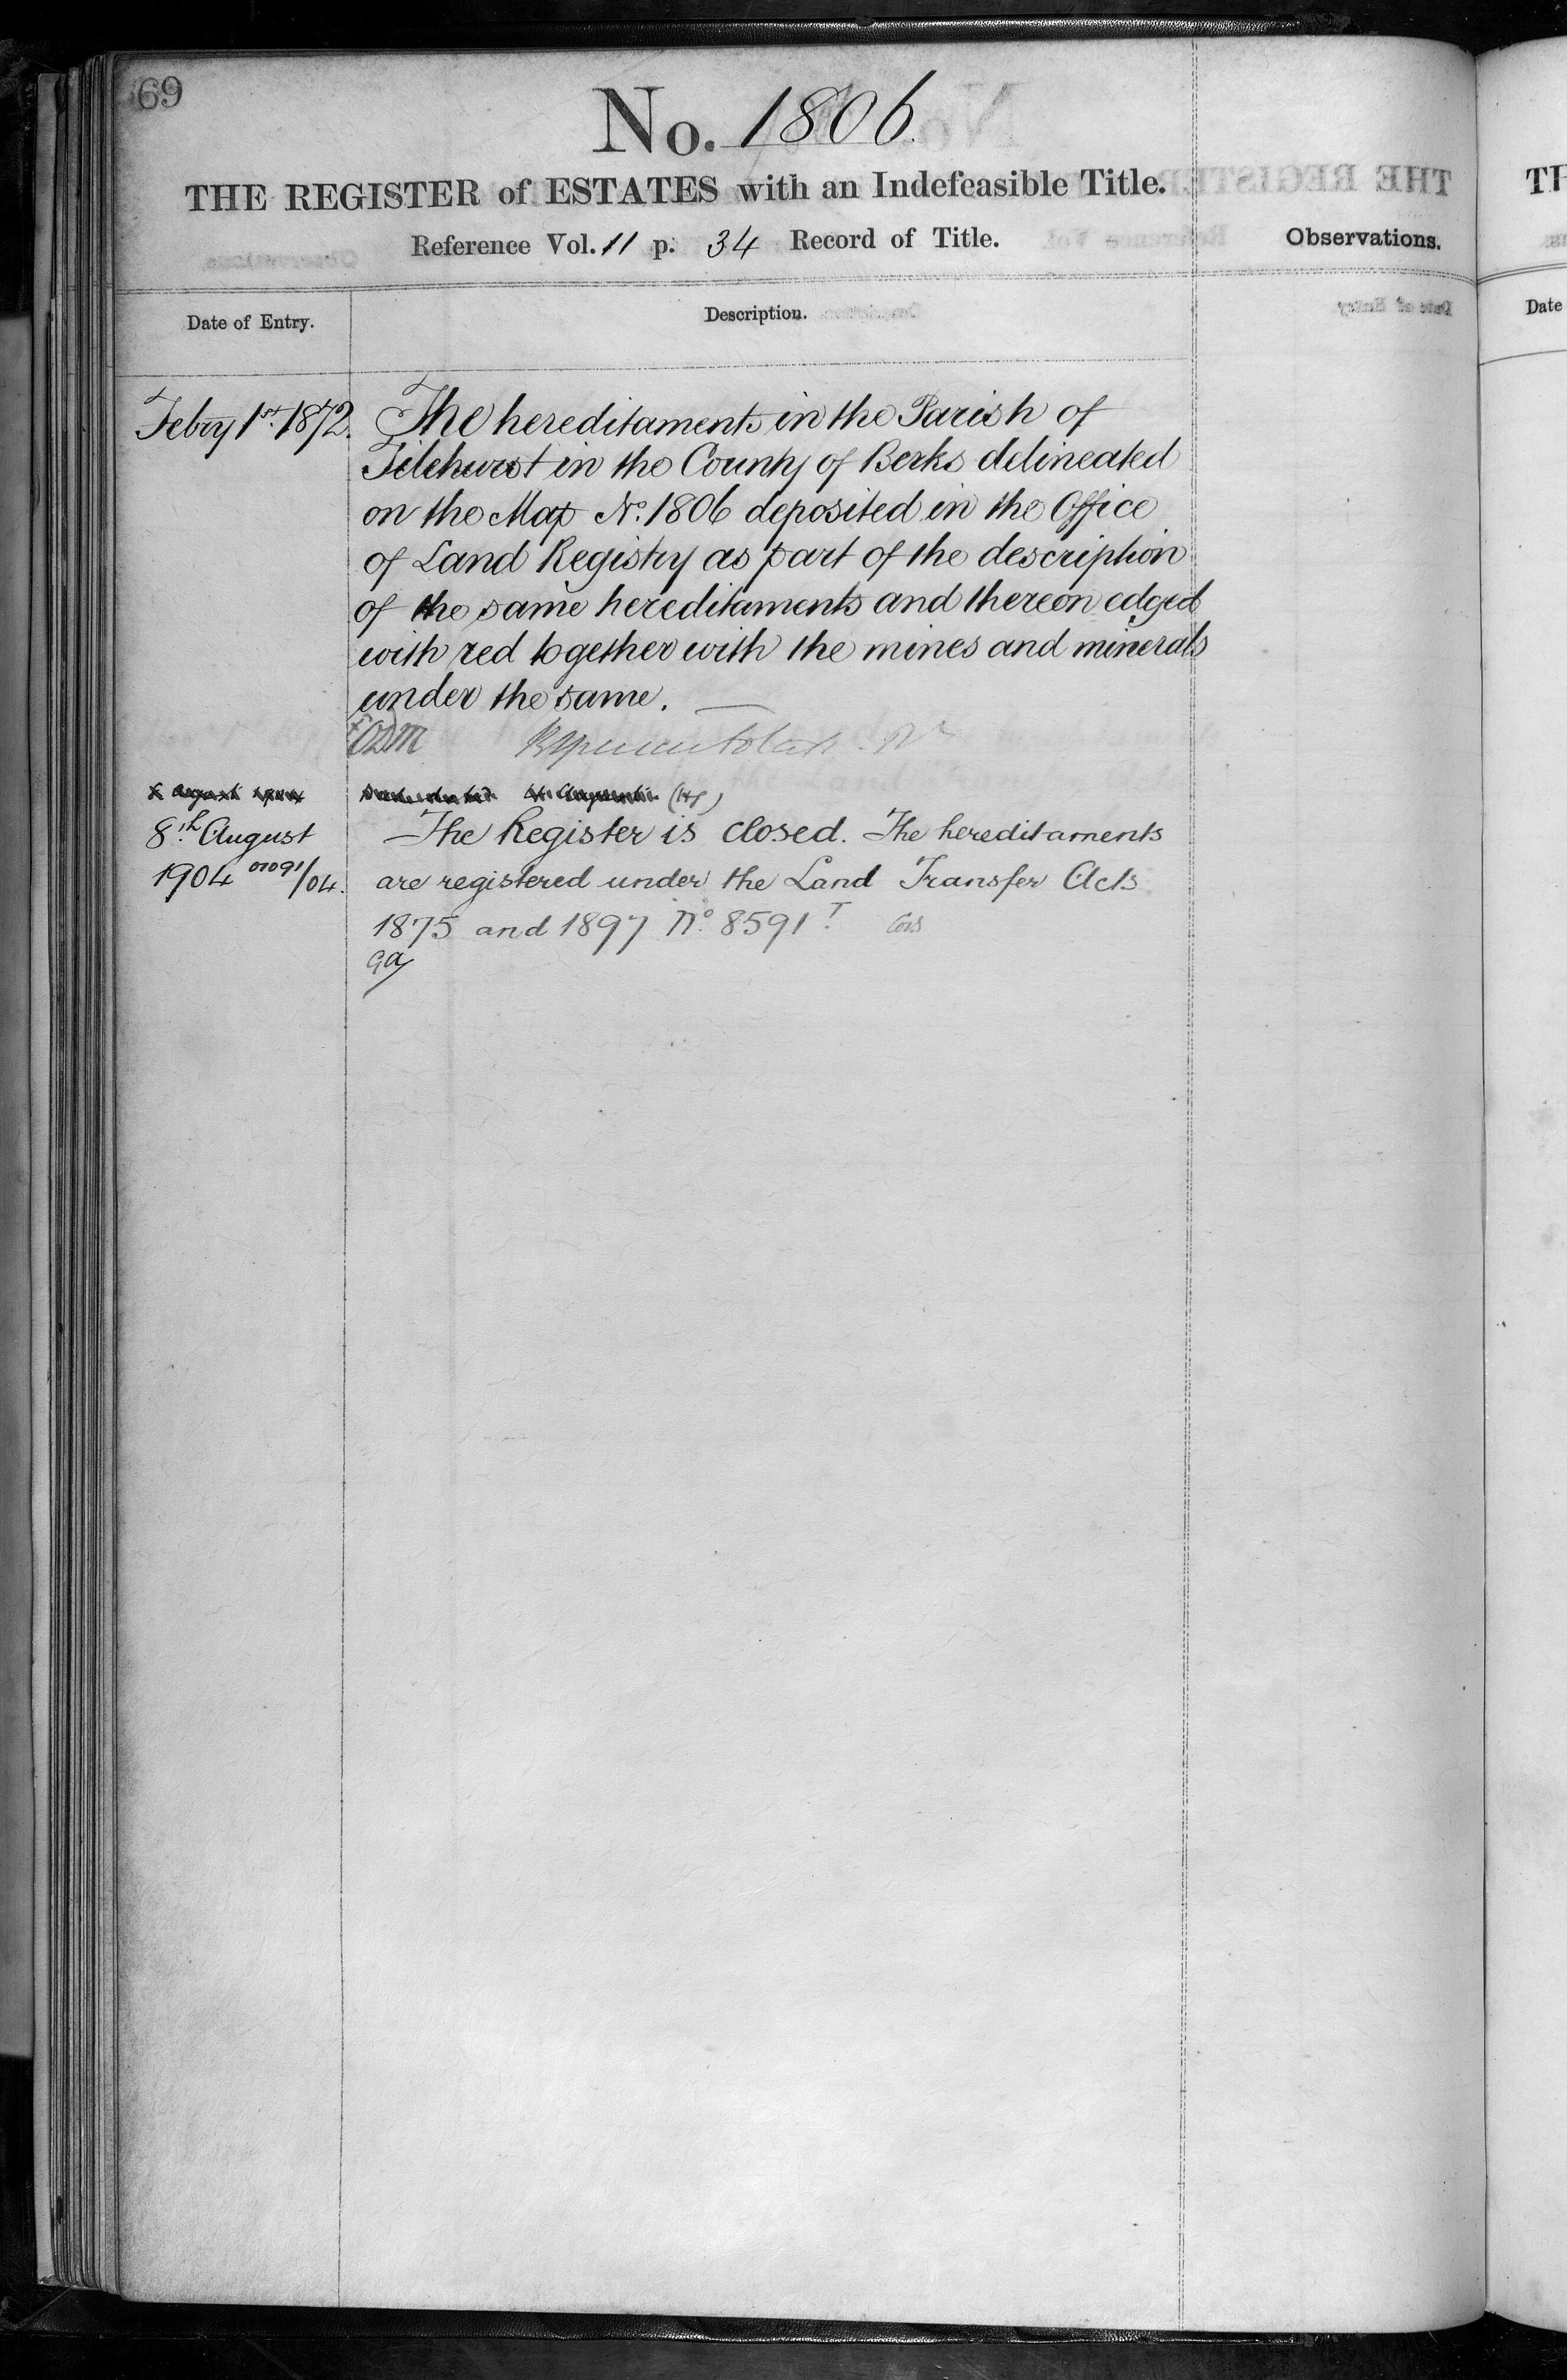 69
No. 1806
THE REGISTER of ESTATES with an Indefeasible Title.
Reference Vol. 11 p. 34 Record of Title.
Observations.
Date of Entry.
Description.
Febry 1st 1872.
The hereditaments in the Parish of
Tilehurst in the County of Berks delineated
on the Map No. 1806 deposited in the Office
of Land Registry as part of the description
of the same hereditaments and thereon edged
with red together with the mines and minerals
under the same.
8th August
1904 01091/04.
The Register is closed. The hereditaments
are registered under the Land Transfer Acts
1875 and 1897 No. 8591 T.
TH
Date